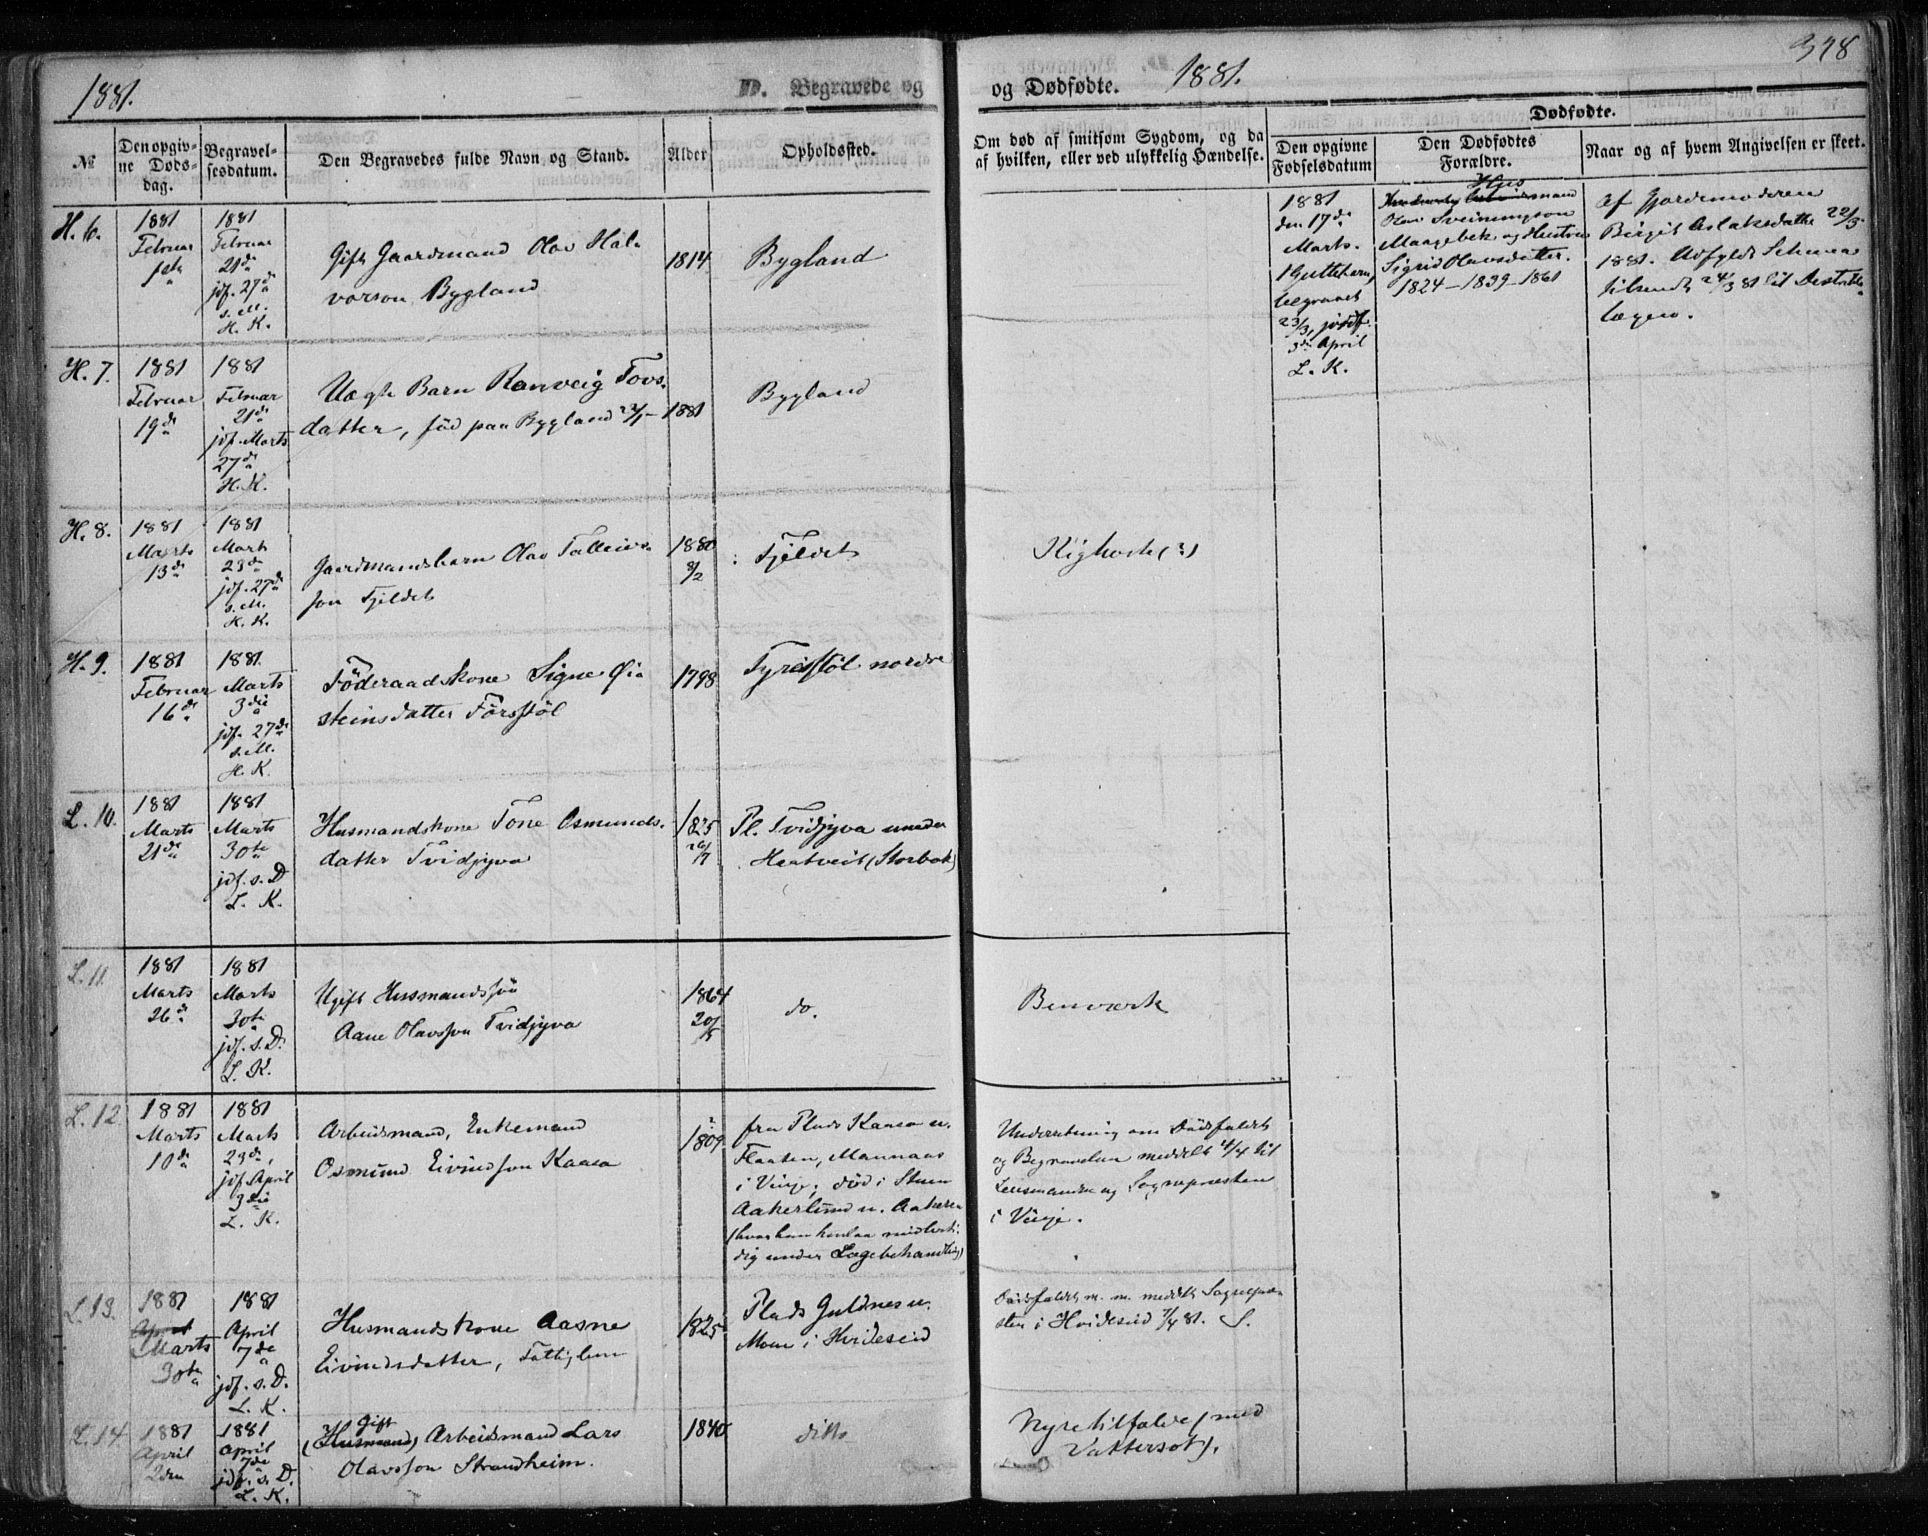 1881.
D. Begravede og
og Dødfødte.
1881.
348
Dødfødte.
№
Den opgivne Døds-dag.
Begravelsesdatum.
Den Begravedes fulde Navn og Stand.
Alder
Opholdssted.
Om død af smitsom Sygdom, og da
af hvilken, eller ved ulykkelig Hændelse.
Den opgivne
Fødselsdatum
Den Dødfødtes
Forældre.
Naar og af hvem Angivelsen er skeet.
H. 6.
1881
Februar
1881
Februar
21de
jdf. 27de
s. M.
H. K.
Gift Gaardmand Olav Hal-
vorson Bygland
1814
Bygland
1881
den 17de
Marts.
1 Guttebarn,
begravet
23/3, jordf.
3die April
L. K.
Olav Sveinungson
Maagebek og Hustru
Sigrid Olavsdatter.
1824 – 1839 – 1861
af Gjordemoderen
Birgit Aslaksdatter 22/3
1881. Udfyldt Schema
tilsendt 24/3 81 til Distrikts-
lægen.
H. 7.
1881
Februar
19de
1881
Februar
21de
jdf. Marts
27de
H. K.
Uægte Barn Ranveig Tovs-
datter, fød paa Bygland
1881
Bygland
H. 8.
1881
Marts
13de
1881
Marts
23de
jdf. 27de
s. M.
H. K.
Gaardmandsbarn Olav Talleivs-
son Fjeldet
1880
8/2
Fjeldet
Kighoste (?)
H. 9.
1881
Februar
16de
1881.
Marts
3die
jdf. 27de
s. M.
H. K.
Föderaadskone Signe Øi-
steinsdatter
1798
nordre
L. 10.
1881
Marts
21de
1881
Marts
30te
jdf. s. D.
L. K.
Husmandskone Tone Osmunds-
datter Tvidjyva
1825
Pl. Tvidjyva under
Haatveit (Storbok)
L. 11
1881
Marts
26de
1881
Marts
30te
jdf. s. D.
L. K.
Ugift Husmandssön
Aane Olavsson Tvidjyva
1864
do.
Benværk
L. 12
1881
Marts
10de
1881
Marts
23de,
jdf. April
3die
L. K.
Arbeidsmand, Enkemand
Osmund Eivindson Kaasa
1809.
fra Plads Kaasa u.
Flaaten, Mannaas
i Vinje; död i Stuen
Aakerlund u. Aakeren
(hvor han henlaa midlerti-
dig under Lægebehandling)
Underretning om Dödsfaldet
og Begravelsen meddelt 4/4 til
Lensmanden og Sognepresten
i Vinje.
L. 13.
1881
April
Marts
30te
1881
April
7de
jdf. s. D.
L. K.
Husmandskone Aasne
Eivindsdatter, Fattiglem
1825
Plads Guldnes u.
Moen i Hvideseid
Dödsfaldet m. m. meddelt Sognepre-
sten i Hvideseid 7/4 81. S.
L. 14
1881
April
2den
1881
April
7de
jdf. s. D.
L. K.
Gift
(Husmand) Arbeidsmand Lars
Olavsson Strandheim.
1840
ditto
Nyretilfælde (med
Vattersot).